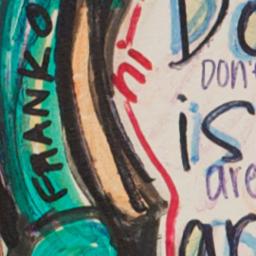 FRANKO
hi
Do
DON'T
is
are
an